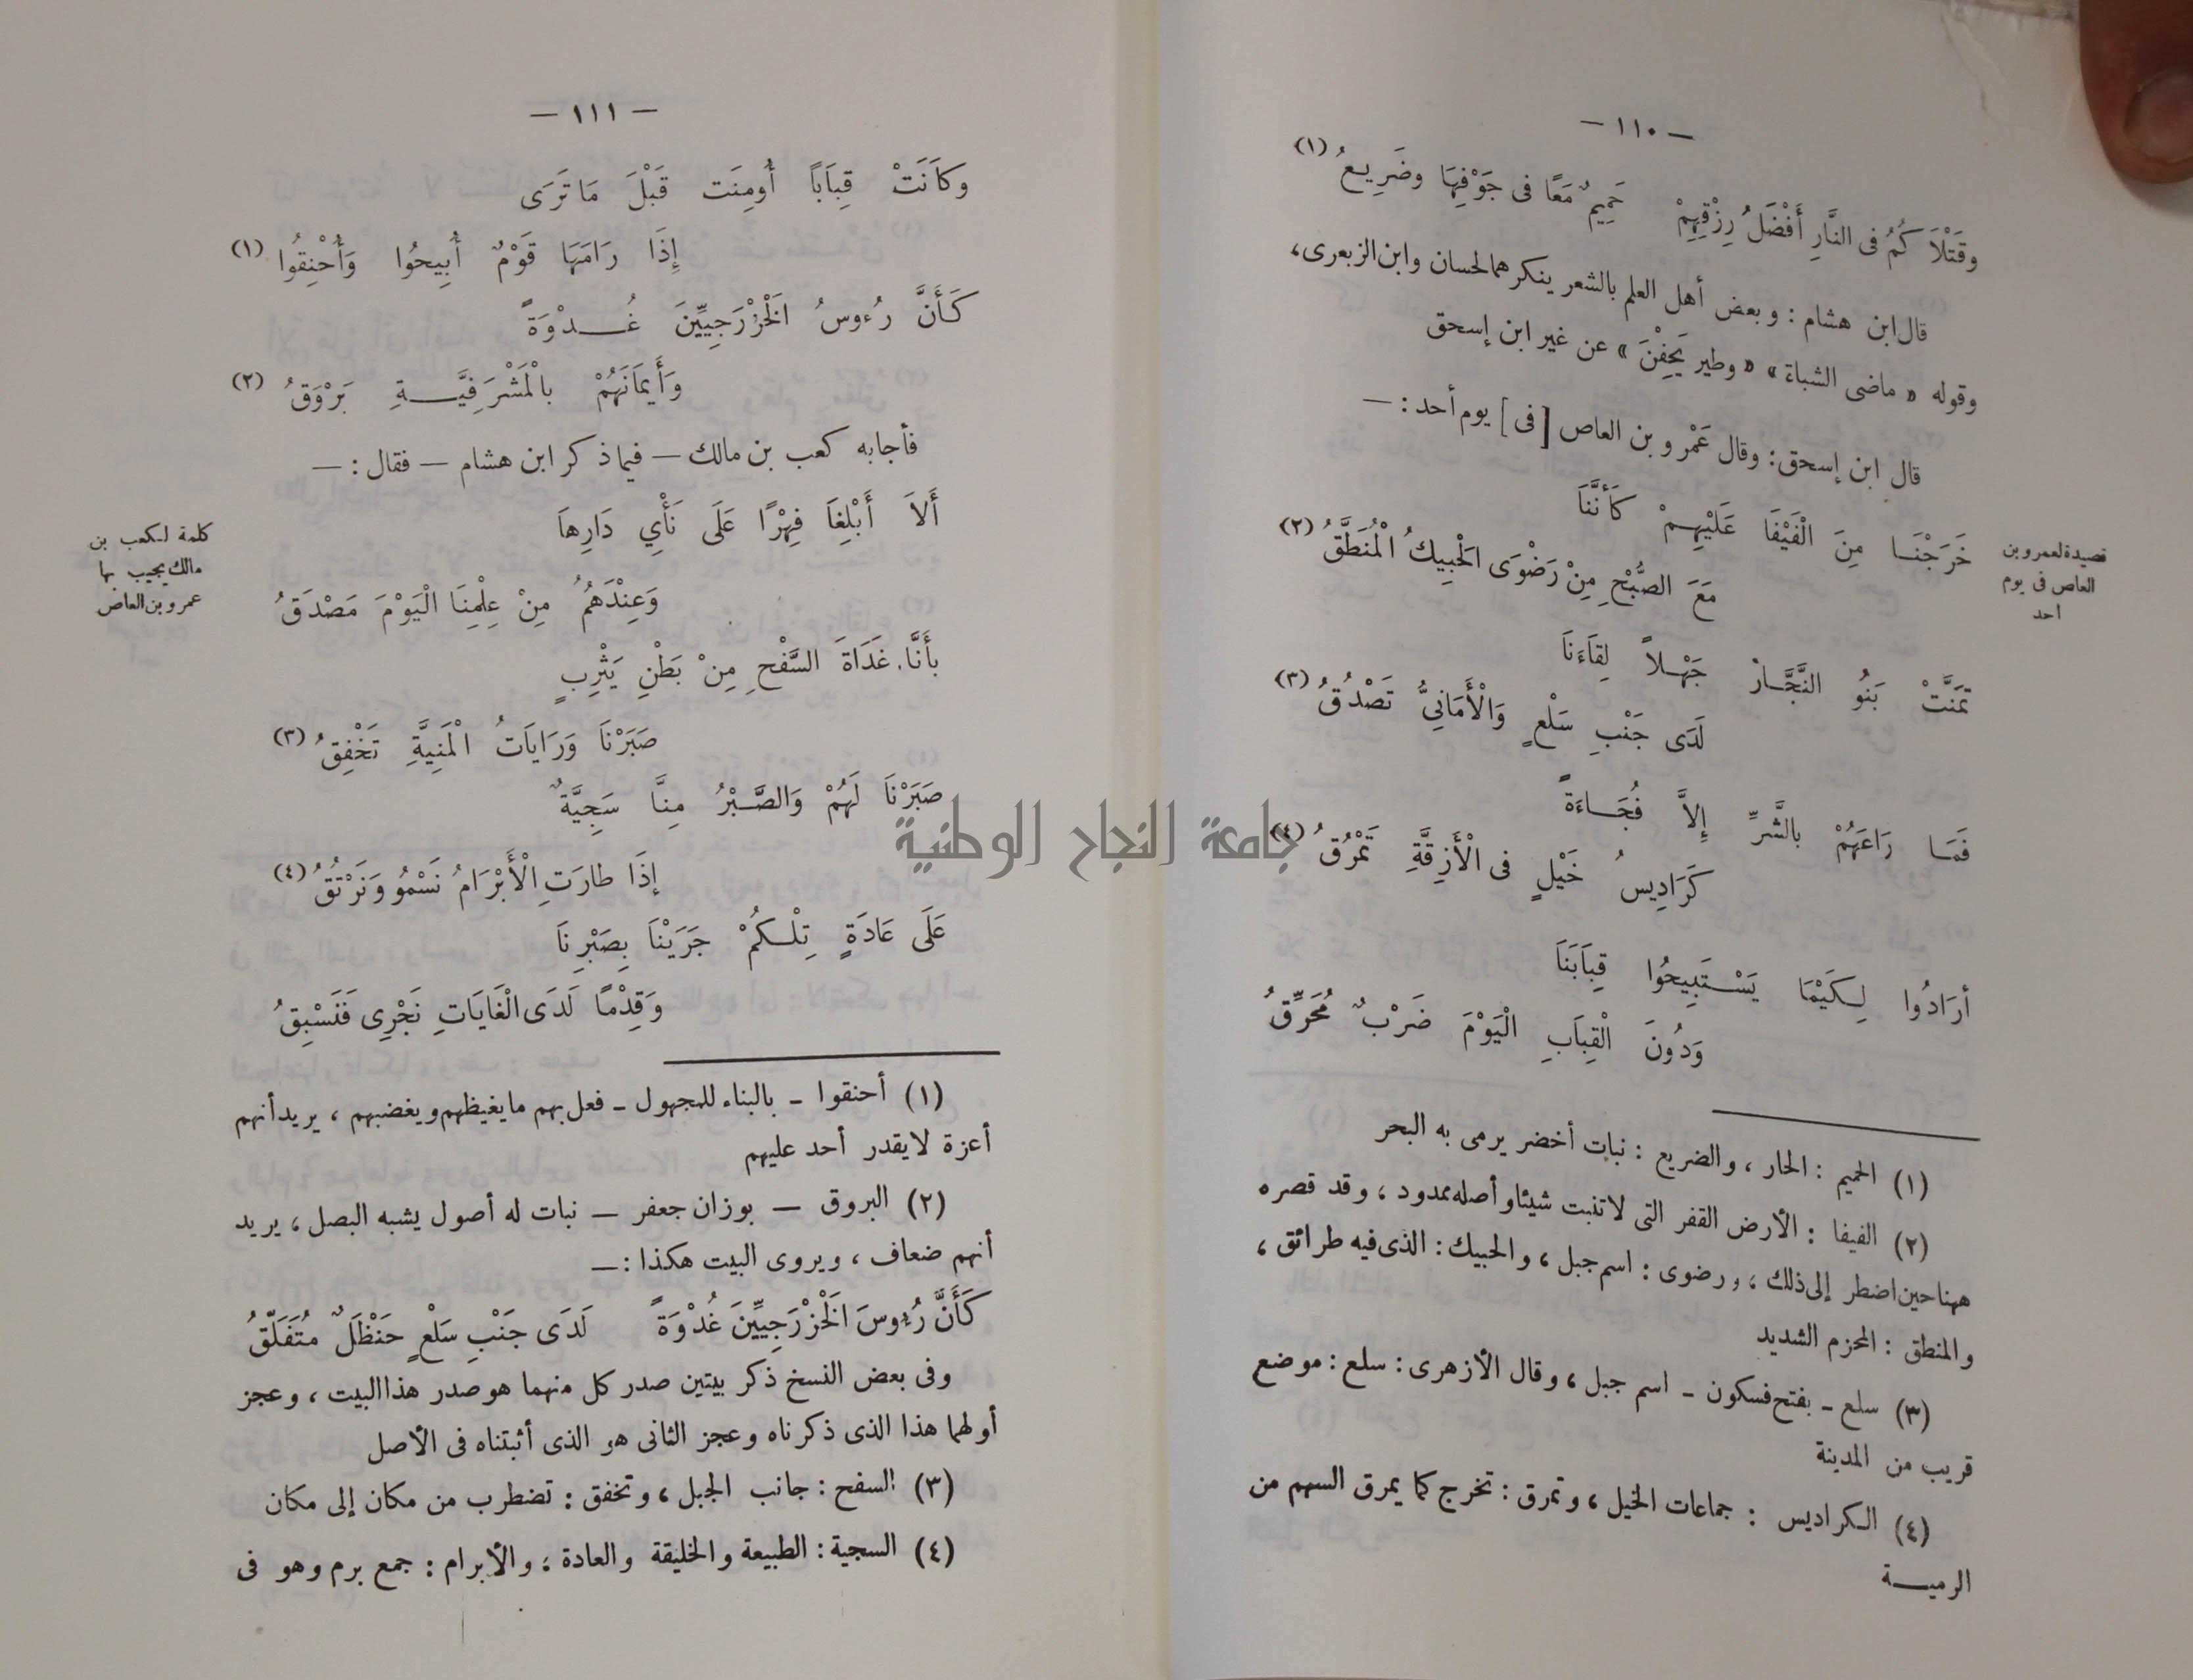 — ١١٠ —
وقَتْلَاكُمُ فى النَّارِ أَفْضَلُ رِزْقِهِمْ حَمِيمٌ مَعًا فى جَوْفِهَا وضَرِيعُ (١)
قال ابن هشام : وبعض أهل العلم بالشعر ينكرهما لحسان وابن الزبعرى،
وقوله « ماضى الشباة » « وطير يَجِفْنَ » عن غير ابن إسحق
قال ابن إسحق: وقال عَمْرو بن العاص [فى] يوم أحد : —
خَرَجْنَا مِنَ الْفَيْفَا عَلَيْهِمْ كَأَنَّنَا
مَعَ الصُّبْحِ مِنْ رَضْوَى الْحَبِيكُ الْمُنَطَّقُ (٢)
تَمَنَّتْ بَنُو النَّجَّارِ جَهْلاً لِقَاءَنَا
لَدَى جَنْبِ سَلْعٍ وَالْأَمَانِيُّ تَصْدُقُ (٣)
فَمَا رَاعَهُمْ بالشَّرِّ إِلاَّ فُجَاءَةً
كَرَادِيسُ خَيْلٍ فى الْأَزِقَّةِ تَمْرُقُ (٤)
أرَادُوا لِكَيْمَا يَسْتَبِيحُوا قِبَابَنَا
وَدُونَ الْقِبَابِ الْيَوْمَ ضَرْبٌ مُحَرِّقُ
قصيدة لعمرو بن
العاص فى يوم
احد
(١) الحميم : الحار ، والضريع : نبات أخضر يرمى به البحر
(٢) الفيفا : الأرض القفر التى لا تنبت شيئا وأصله ممدود ، وقد قصره
ههنا حين اضطر إلى ذلك ، ورضوى : اسم جبل ، والحبيك : الذى فيه طرائق ،
والمنطق : المحزم الشديد
(٣) سلع - بفتح فسكون - اسم جبل ، وقال الأزهرى : سلع : موضع
قريب من المدينة
(٤) الكراديس : جماعات الخيل ، وتمرق : تخرج كما يمرق السهم من
الرمية
— ١١١ —
وكَانَتْ قِبَاباً أُومِنَت قَبْلَ مَا تَرَى
إِذَا رَامَهَا قَوْمٌ أُبِيحُوا وَأُحْنِقُوا (١)
كَأَنَّ رُءوسُ الْخَزْرَجِيِّينَ غُدْوَةً
وَأَيمَانَهُمْ بالْمَشْرَفِيَّةِ بَرْوَقُ (٢)
فأجابه كعب بن مالك — فيما ذكر ابن هشام — فقال : —
أَلاَ أَبْلِغَا فِهْرًا عَلَى نَأْيِ دَارِهَا
وَعِنْدَهُمُ مِنْ عِلْمِنَا الْيَوْمَ مَصْدَقُ
بأَنَّا غَدَاةَ السَّفْحِ مِنْ بَطْنِ يَثْرِبٍ
صَبَرْنَا وَرَايَاتُ الْمَنِيَّةِ تَخْفِقُ (٣)
صَبَرْنَا لَهُمْ وَالصَّبْرُ مِنَّا سَجِيَّةٌ
إِذَا طارَتِ الْأَبْرَامُ نَسْمُو وَنَرْتُقُ (٤)
عَلَى عَادَةٍ تِلْكُمْ جَرَيْنَا بِصَبْرِنَا
وَقِدْمًا لَدَى الْغَايَاتِ نَجْرِى فَنَسْبِقُ
كلمة لكعب بن
مالك يجيب بها
عمرو بن العاص
(١) أحنقوا - بالبناء للمجهول - فعل بهم ما يغيظهم ويغضبهم ، يريد أنهم
أعزة لا يقدر أحد عليهم
(٢) البروق — بوزان جعفر — نبات له أصول يشبه البصل ، يريد
أنهم ضعاف ، ويروى البيت هكذا : —
كَأَنَّ رُءوسَ الْخَزْرَجِيِّينَ غُدْوَةً لَدَى جَنْبِ سَلْعٍ حَنْظَلٌ مُتَفَلّقُ
وفى بعض النسخ ذكر بيتين صدر كل منهما هو صدر هذا البيت ، وعجز
أولهما هذا الذى ذكرناه وعجز الثانى هو الذى أثبتناه فى الأصل
(٣) السفح : جانب الجبل ، وتخفق : تضطرب من مكان إلى مكان
(٤) السجية : الطبيعة والخليقة والعادة ، والأبرام : جمع برم وهو فى
جامعة النجاح الوطنية